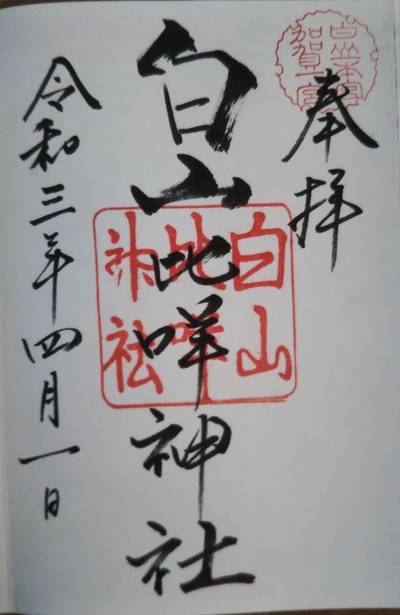 奉拝
白山比咩神社
令和三年四月一日
加賀一宮
白山比咩神社